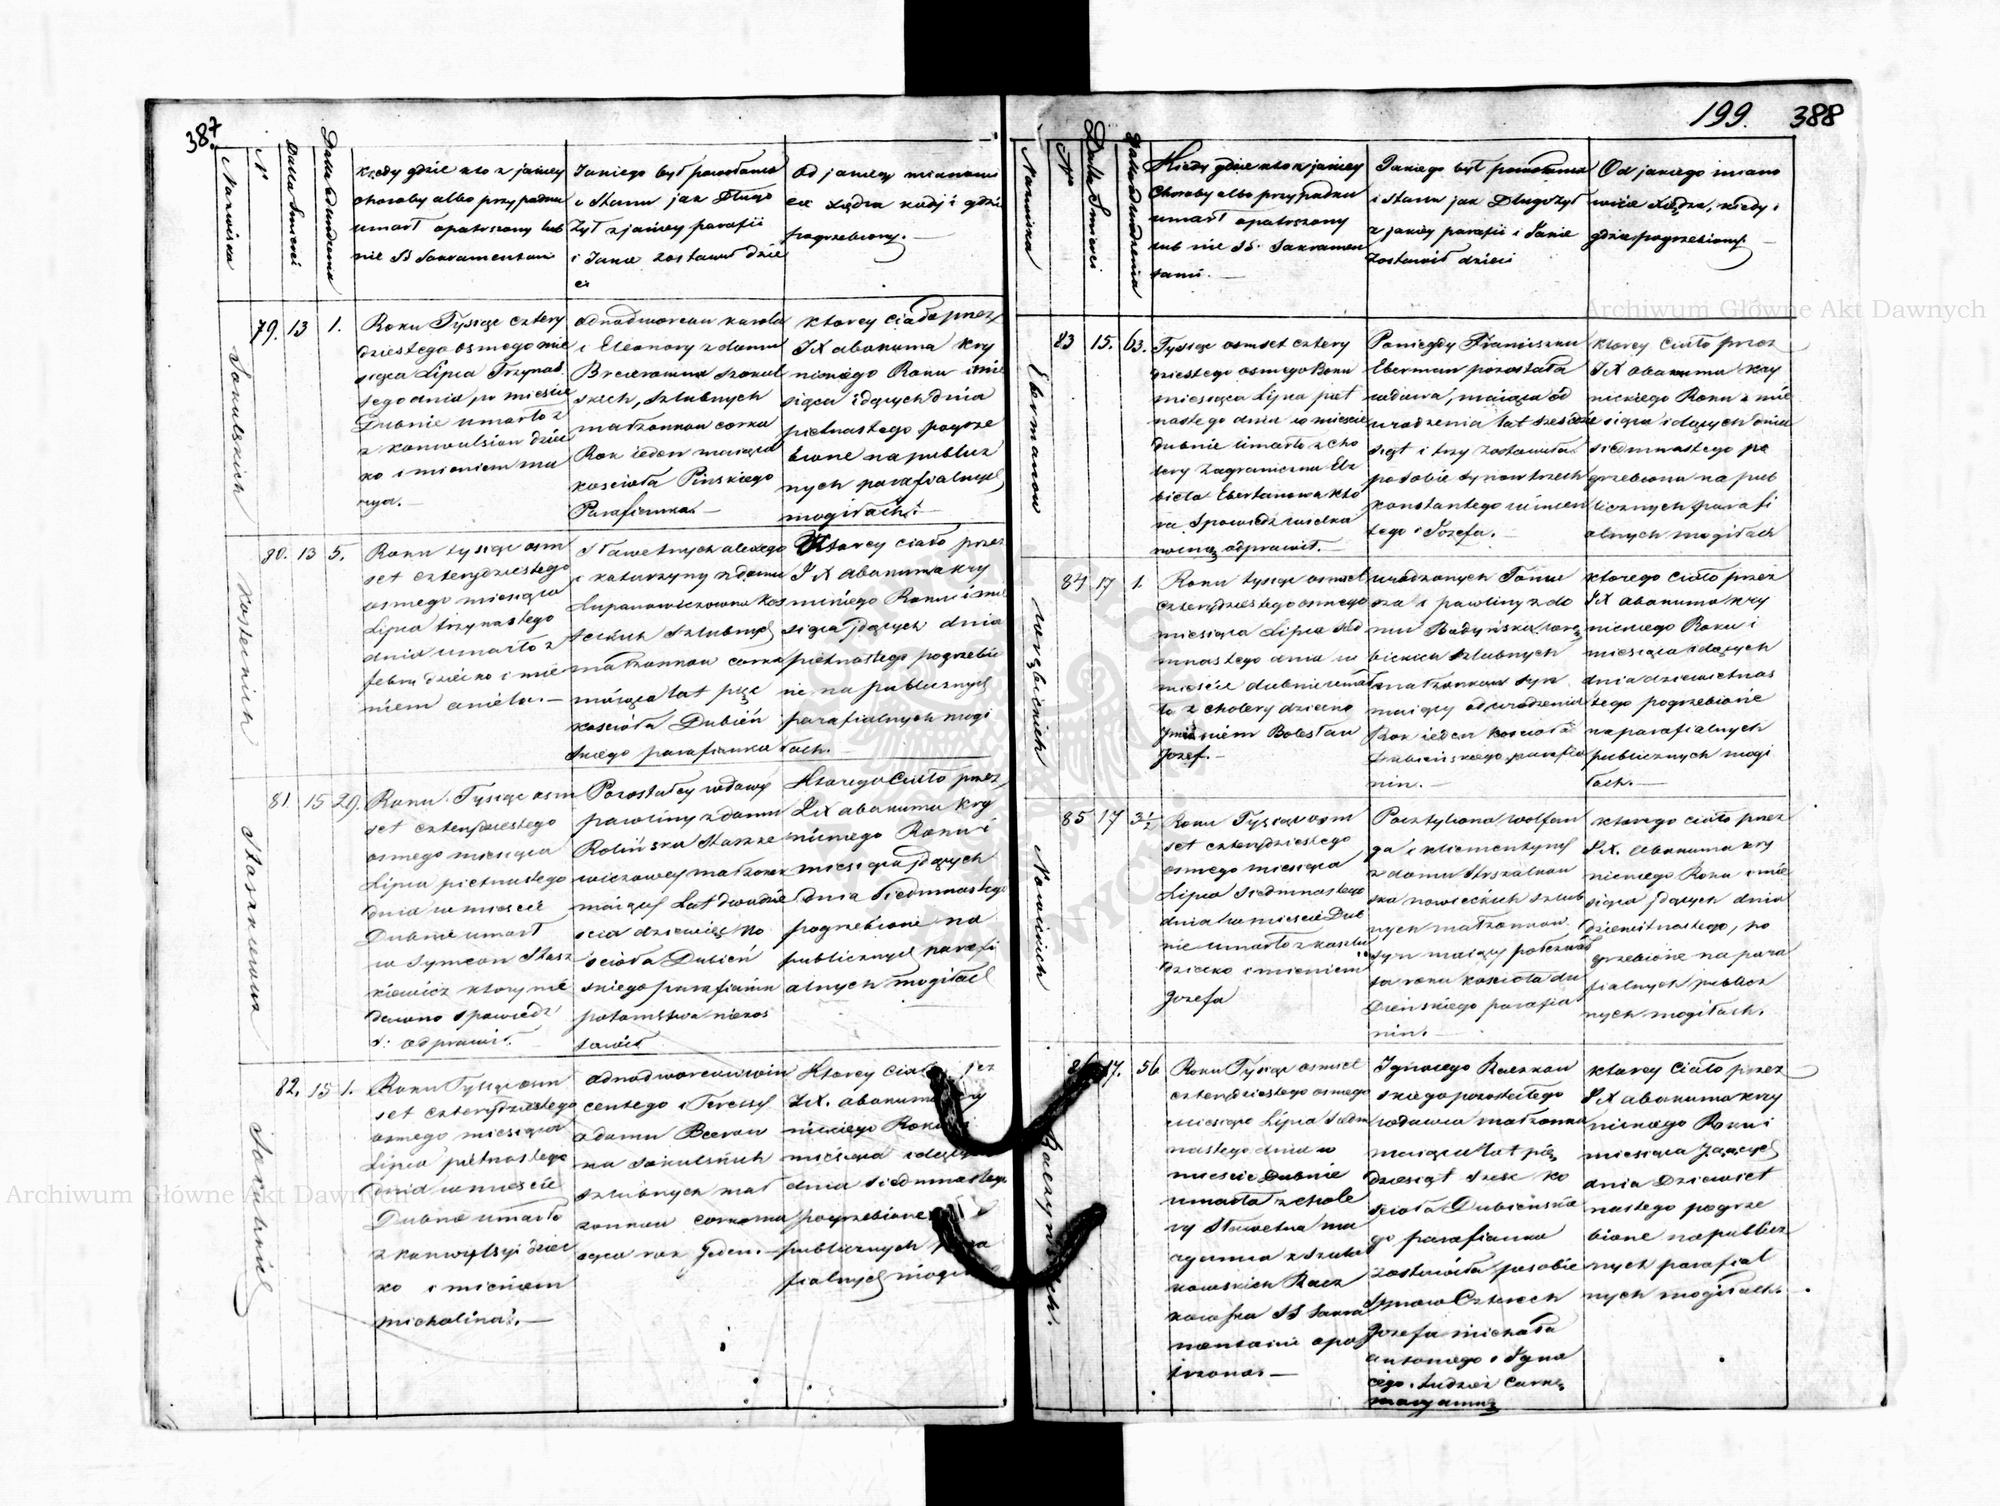 387.
Nazwiska
N
Datta Smierci
Kiedy gdzie kto z jakiey
choroby albo przypadku
umarł opatrzony lub
nie SS Sakramentami
Jakiego był powołania
i Stanu jak Długo
Żył z jakiey parafii
i Jakie zostawił dzie
ci
Od jakiego mianowi
cie Xiędza kiedy i gdzie
pogrzebiony.
79. 13 1.
Sokulskich
Roku Tysiąc cztery
dziestego osmego mie
siąca Lipca Trzynas
tego dnia, w mieście
Dubnie umarło z
z konwulsion dziec
ko imieniem Ma
rya.
odnodworcow Karola
i Eleonory z domu
małżonkow corka
Rok ieden maiąca
kościoła Pinskiego
Parafianka.
Ktorey Ciało przez
JX abakuma kry
nickiego Roku i mie
siąca idących dnia
pietnastego pogrze
bione na publicz
nych parafialnych
mogiłach.
80. 13 5.
Kosteckich
Roku tysiąc osm
set czterydziestego
osmego miesiąca
Lipca trzynastego
dnia umarło z
febry dziecko imie
niem aniela.
Sławetnych alexego
i katarzyny z domu
Łupanowiczowna Kos
teckich szlubnych
małżonkow corka
maiąca lat pięć
kościoła Dubień
skiego parafianka
Ktorey ciało przez
JX abakuma kry
nickiego Roku i mie
siąca idących dnia
pietnastego pogrzebio
ne na publicznych
parafialnych mogi
łach.
81. 15 29.
Staszkiewicz
Roku Tysiąc osm
set czterydziestego
osmego miesiąca
Lipca pietnastego
dnia w mieście
Dubnie umarł
Symeon Stasz
kiewicz ktory nie
dawno spowiedź
S: odprawił.
Pozostałey wdowy
pawliny z domu
Rolińska Staszke
wiczowey małżonek
maiący Lat dwadzie
scia dziewięć ko
ścioła Dubień
skiego parafianin
potomstwa niezos
tawił
Ktorego Ciało przez
JX abakuma kry
nickiego Roku i
miesiąca idących
dnia siedmnastego
pogrzebione na
publicznych parafi
alnych mogiłach
82. 15 1.
Roku Tysiąc osm
set czterydziestego
osmego miesiąca
Lipca pietnastego
dnia w mieście
Dubno umarło
z konwulsyi dziec
ko imieniem
Michalina.
odnodworcow win
centego i Teressy
z domu
szlubnych mał
żonkow corka ma
iąca rok jeden.
Ktorey Ciało
JX. abakuma kry
nickiego Roku i
miesiąca idących
dnia siedmnastego
pogrzebione
publicznych para
fialnych mogił
199. 388
Nazwiska
Nr
Datta Smierci
Kiedy gdzie kto z jakiey
Choroby albo przypadku
umarł opatrzony
lub nie SS. Sakramen
tami.
Jakiego był powołania
i Stanu jak Długo Żył
z jakiey parafii i Jakie
Zostawił dzieci
Od jakiego miano
wicie Xiędza, kiedy i
gdzie pogrzebiony.
83 15. 63.
Ebermanow
Tysiąc osmset cztery
dziestego osmego Roku
miesiąca Lipca piet
nastego dnia w mieście
dubnie Umarła z cho
lery Zagraniczna Elż
bieta
ra Spowiedź wielka
nocną odprawił.
Poniegdy Franciszku
Eberman pozostała
wdowa, maiąca od
urodzenia lat sześćdzie
siąt i trzy zostawiła
po sobie synow trzech
konstantego wincen
tego i Jozefa.
Ktorey Ciało przez
JX abakuma kry
nickiego Roku i mie
siąca idących dnia
siedmnastego po
grzebiona na pub
licznych parafi
alnych mogiłach
84 17 1.
Roku tysiąc osmset
czterydziestego osmego
miesiąca Lipca sied
mnastego dnia w
mieście dubnie umar
ło z cholery dziecko
Imieniem Bolesław
Jozef.
urodzonych Toma
sza i pawliny z do
mu
szlubnych
małżonkow syn
maiący od urodzenia
Rok ieden kościoła
Dubieńskiego parafia
nin.
ktorego Ciało przez
JX abakuma kry
nickiego Roku i
miesiąca idących
dnia dziewietnas
tego pogrzebione
na parafialnych
publicznych mogi
łach.
85 17 3½
Nowickich
Roku Tysiąc osm
set czterydziestego
osmego miesiąca
Lipca siedmnastego
dnia w mieście Dub
nie umarło z kaszlu
dziecko imieniem
Jozefa
Pocztyliona wolfan
ga i klementyny
z domu
nowickich szlub
nych małżonkow
syn maiący
ta roku kościoła du
bieńskiego parafia
nin.
ktorego ciało przez
JX. Abakuma kry
nickiego Roku i mie
siąca idących dnia
dziewietnastego, po
grzebione na para
fialnych publicz
nych mogiłach.
86 17. 56
Raczkowskich.
Roku Tysiąc osmset
czterydziestego osmego
miesiąca Lipca siedm
nastego dnia w
mieście Dubnie
umarła z chole
ry Sławetna ma
ryanna z
kowskich Racz
kowska SS Sakra
mentami opa
trzona.
Ignacego Raczkow
skiego pozostałego
wdowca małżonka
maiąca lat pięć
dziesiąt szesc ko
ścioła Dubieńskie
go parafianka
zostawiła posobie
synow Czterech
Jozefa michała
antoniego i Igna
cego, tudzież Corkę
maryannę
ktorey Ciało przez
JX abakuma kry
nickiego Roku i
miesiąca idących
dnia Dziewiet
nastego pogrze
bione na publicz
nych parafial
nych mogiłach.
Archiwum Główne Akt Dawnych
Archiwum Główne Akt Dawnych